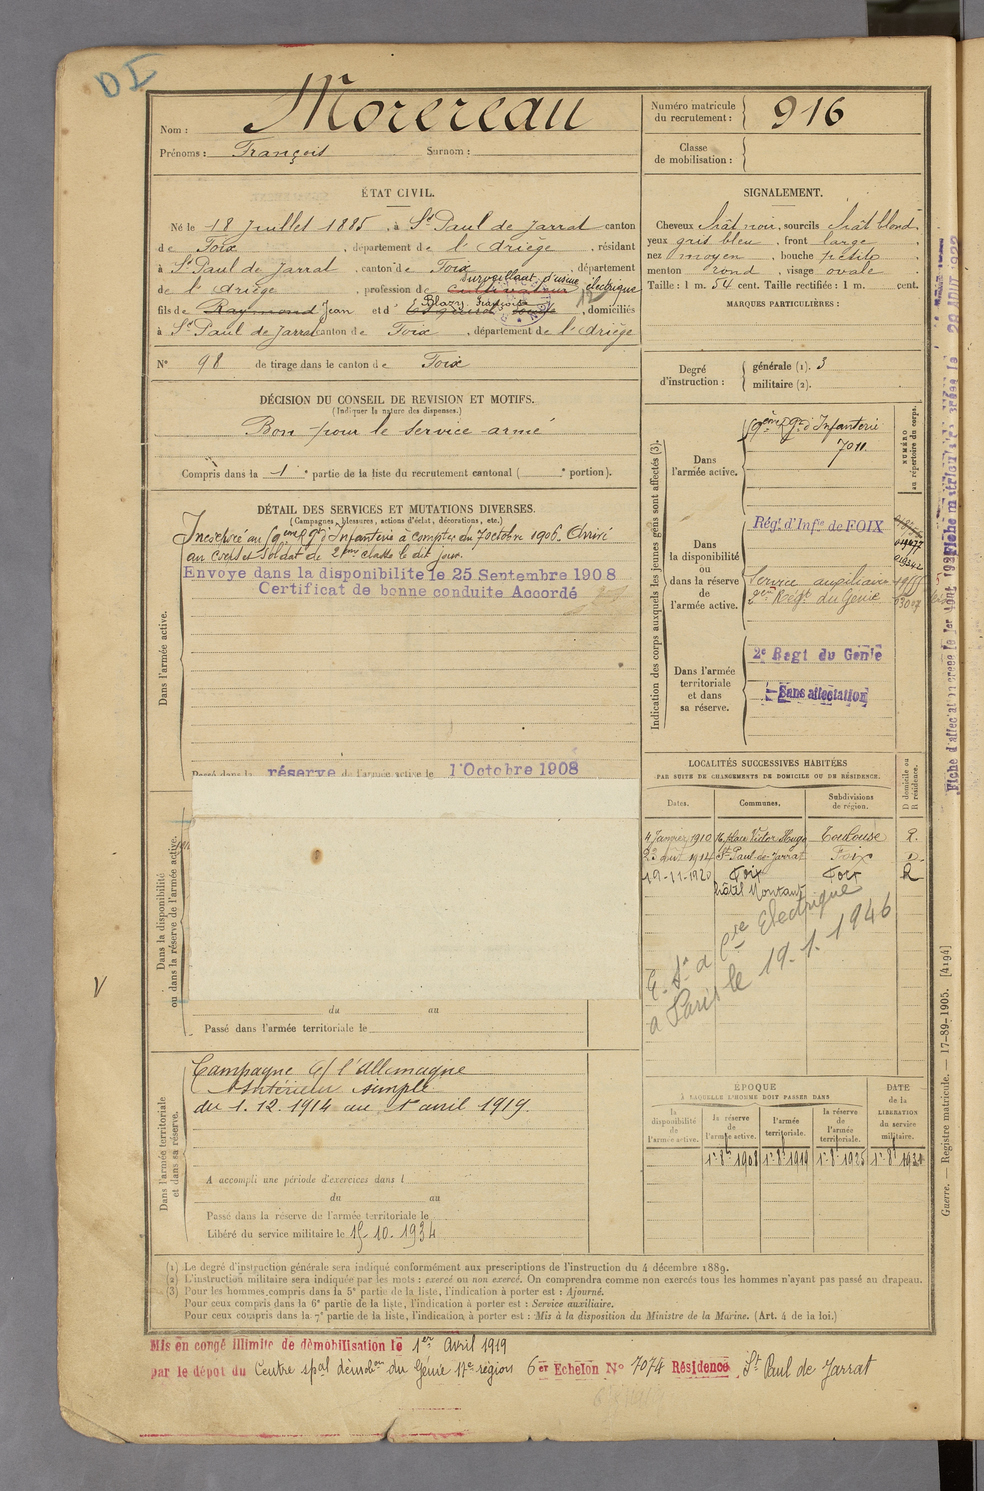 DI
Nom : Morereau
Prénoms : François Surnom :
Numéro matricule du recrutement : 916
Classe de mobilisation :
ÉTAT CIVIL.
Né le 18 Juillet 1885, à St Paul de Jarrat canton
de Foix, département de l'Ariège, résidant
à St Paul de Jarrat, canton de Foix, département
de l'Ariège, profession de cultivateur surveillant d'usine électrique
fils de Raymond Jean et d' Blazy Françoise, domiciliés
à St Paul de Jarrat canton de Foix, département de l'Ariège
N° 98 de tirage dans le canton de Foix
SIGNALEMENT.
Cheveux chât noir, sourcils chât blond
yeux gris bleu, front large
nez moyen, bouche petite
menton rond, visage ovale
Taille : 1 m. 54 cent. Taille rectifiée : 1 m. cent.
MARQUES PARTICULIÈRES :
Degré d'instruction : générale (1). 3
militaire (2).
DÉCISION DU CONSEIL DE REVISION ET MOTIFS.
(Indiquer la nature des dispenses.)
Bon pour le service armé
Compris dans la 1e partie de la liste du recrutement cantonal ( e portion).
DÉTAIL DES SERVICES ET MUTATIONS DIVERSES.
(Campagnes, blessures, actions d'éclat, décorations, etc.)
Dans l'armée active.
Incorporé au 59ème Rgt d'Infanterie à compter du 7 octobre 1906. Arrivé
au corps et soldat de 2ème classe le dit jour.
Envoyé dans la disponibilité le 25 Septembre 1908
Certificat de bonne conduite Accordé
Passé dans la réserve de l'armée active le 1 Octobre 1908
Dans la disponibilité ou dans la réserve de l'armée active.
du au
Passé dans l'armée territoriale le
V
Dans l'armée territoriale et dans sa réserve.
Campagne c/ l'Allemagne
Intérieur simple
du 1.12.1914 au 1er avril 1919.
A accompli une période d'exercices dans l
du au
Passé dans la réserve de l'armée territoriale le
Libéré du service militaire le 15-10.1934
Indication des corps auxquels les jeunes gens sont affectés (3).
NUMÉRO au répertoire du corps.
Dans l'armée active.
59ème Rgt d'Infanterie
7011
Dans la disponibilité ou dans la réserve de l'armée active.
Régt. d'Infie de FOIX
Service auxiliaire
2ème Régt du Génie
Dans l'armée territoriale et dans sa réserve.
2e Regt du Génie
Sans affectation
LOCALITÉS SUCCESSIVES HABITÉES
PAR SUITE DE CHANGEMENTS DE DOMICILE OU DE RÉSIDENCE.
Dates. Communes. Subdivisions de région. D domicile ou R résidence.
4 Janvier 1910 16 place Victor Hugo Toulouse R.
23 août 1914 St Paul de Jarrat Foix D.
19-11-1920 Foix Foix R
chât Montaut
Electrique
a Paris le 19.1.1946
ÉPOQUE
À LAQUELLE L'HOMME DOIT PASSER DANS
DATE de la LIBÉRATION du service militaire.
la disponibilité de l'armée active. la réserve de l'armée active. l'armée territoriale. la réserve de l'armée territoriale.
1r 8b 1908 1r 8b 1919 1r 8b 1925 1r 8b 1931
Guerre. — Registre matricule. — 17-89-1905. [4194]
(1) Le degré d'instruction générale sera indiqué conformément aux prescriptions de l'instruction du 4 décembre 1889.
(2) L'instruction militaire sera indiquée par les mots : exercé ou non exercé. On comprendra comme non exercés tous les hommes n'ayant pas passé au drapeau.
(3) Pour les hommes compris dans la 5e partie de la liste, l'indication à porter est : Ajourné.
Pour ceux compris dans la 6e partie de la liste, l'indication à porter est : Service auxiliaire.
Pour ceux compris dans la 7e partie de la liste, l'indication à porter est : Mis à la disposition du Ministre de la Marine. (Art. 4 de la loi.)
Mis en congé illimité de démobilisation le 1er Avril 1919
par le dépôt du Centre spal démobon du Génie 17e région 6er Echelon N° 7074 Résidence St Paul de Jarrat